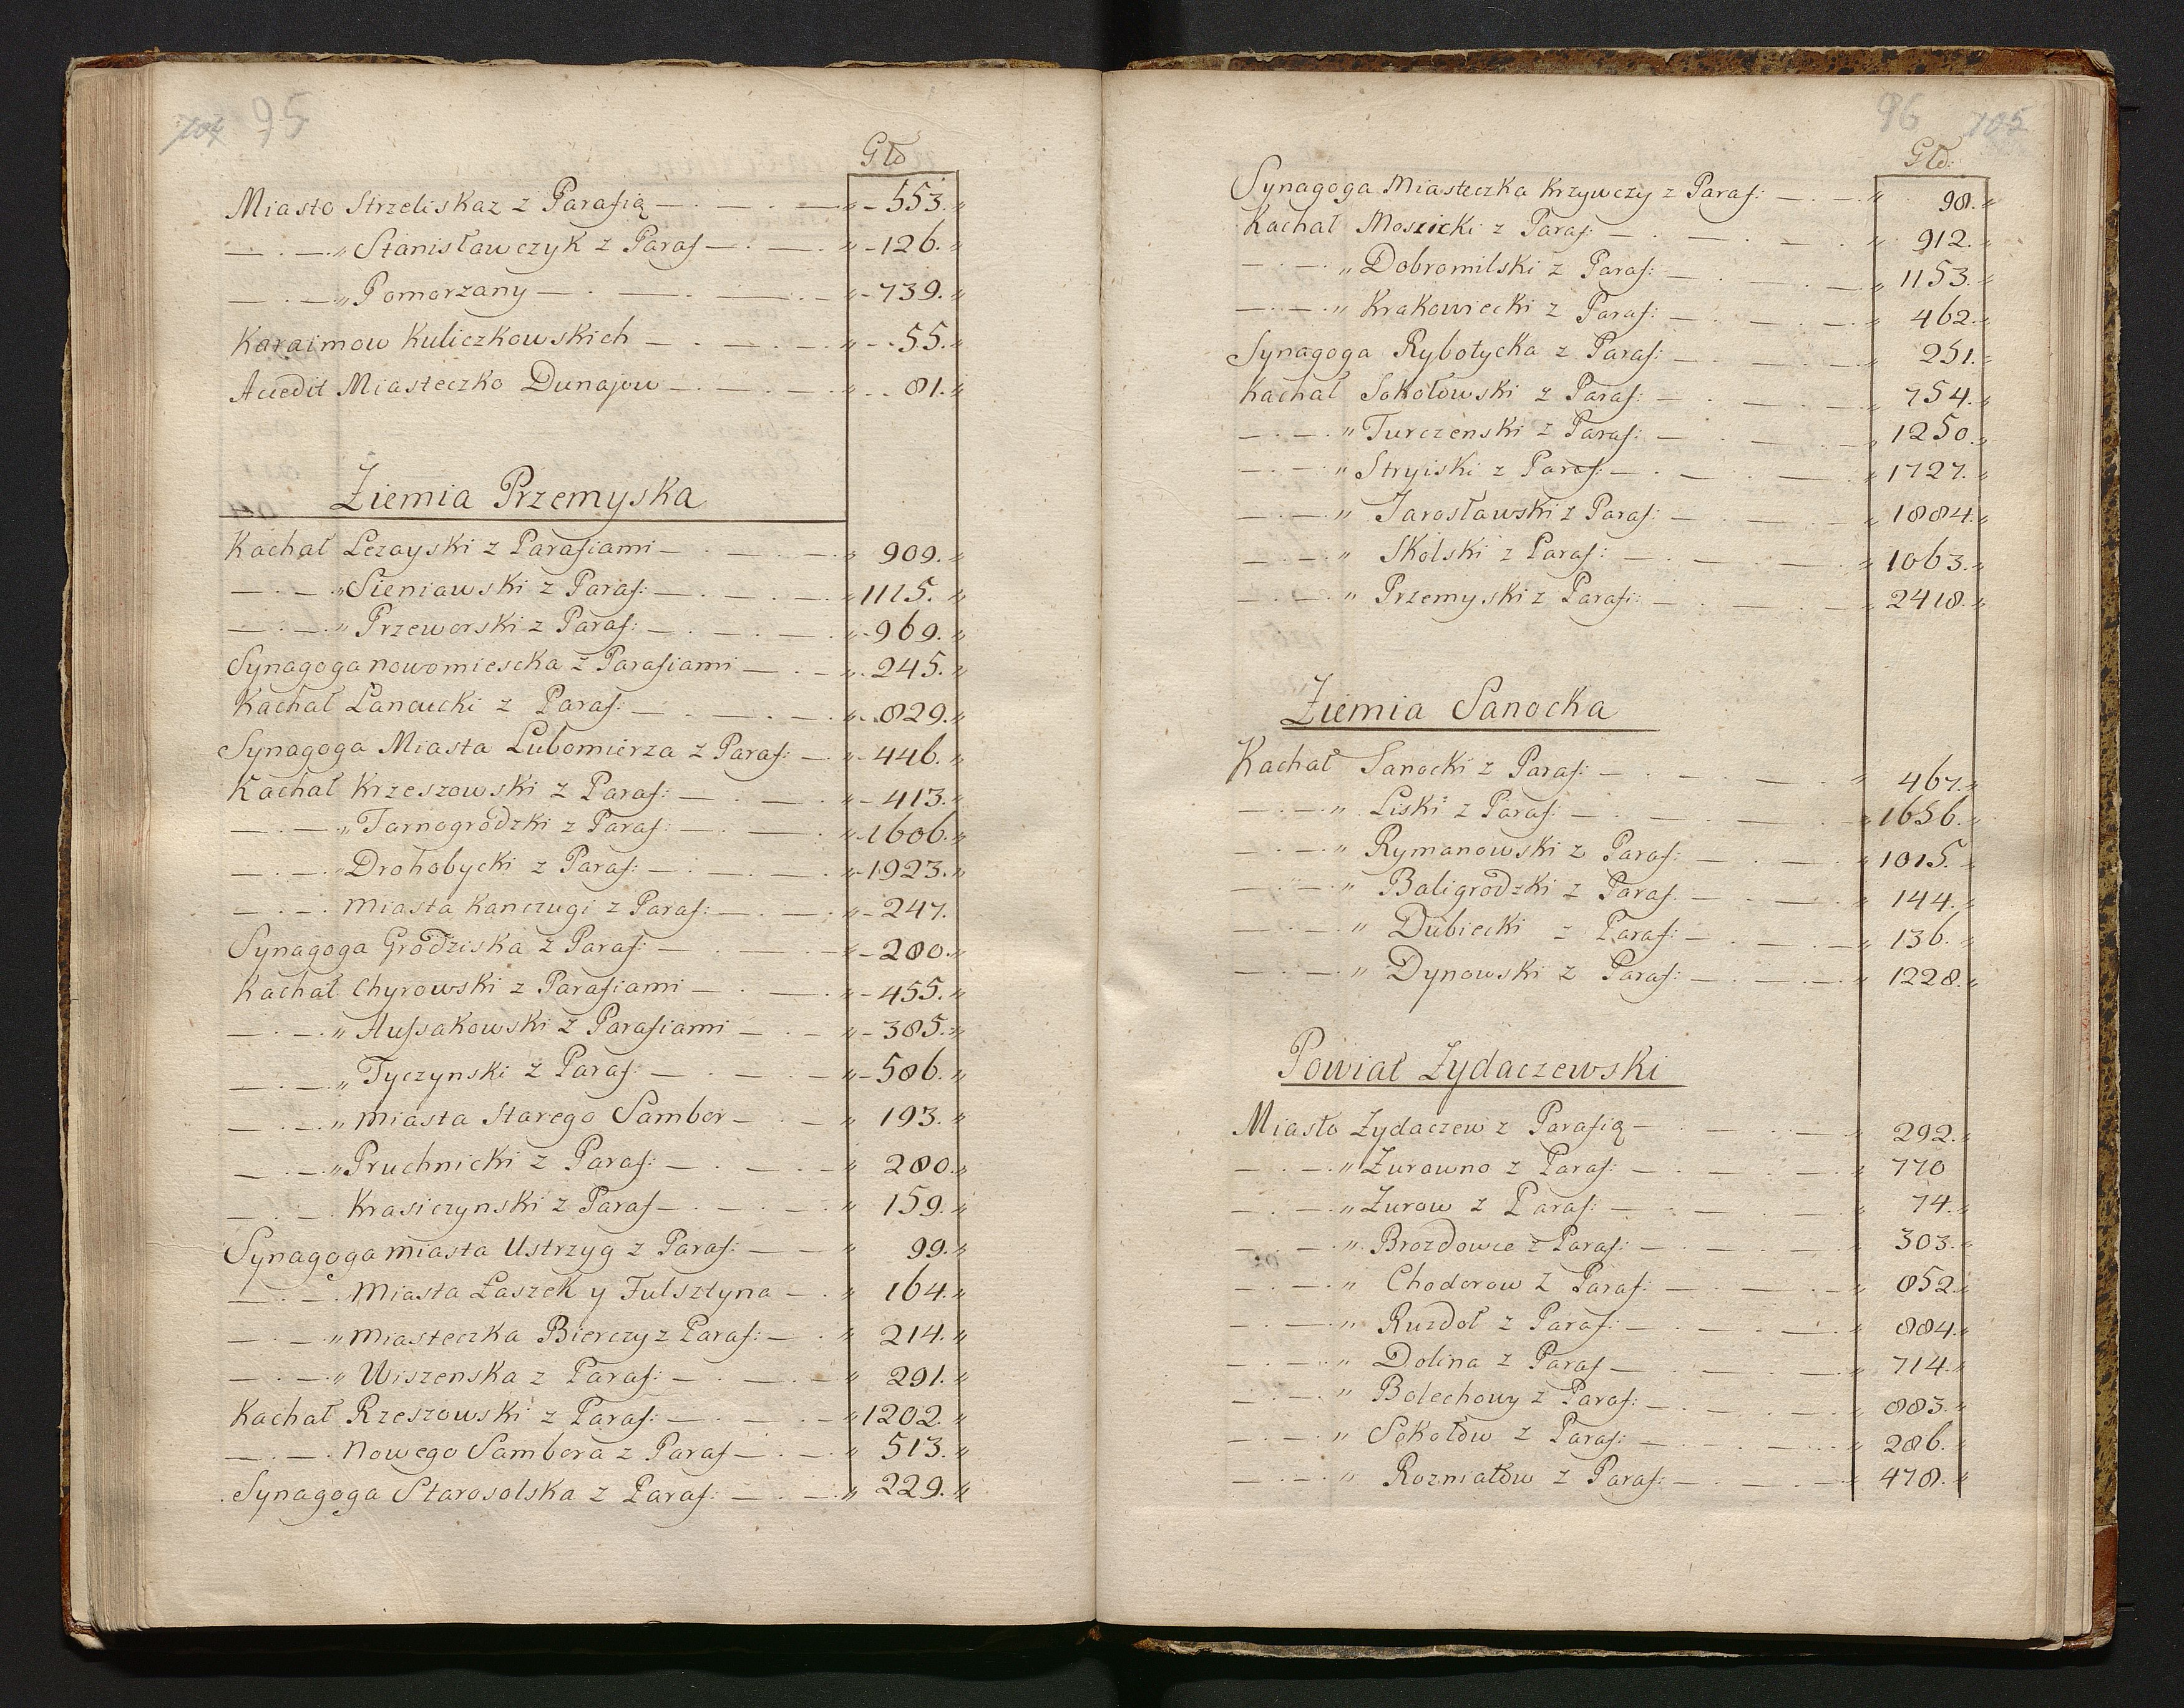 104 95
Głd
Miasto Strzeliskaz z Parafią — . — . — „ - 553. „
— . — . „ Stanisławczyk z Paraf — . — . „ - 126. „
— . — „ Pomorzany — . — . — . — „ - 739. „
Karaimow Kuliczkowskich — . — . — „ - . 55. „
Accedit Miasteczko Dunajow — . — . — „ . . 81. „
Ziemia Przemyska
Kachał Lezayski z Parafiami — . — . — . „ 909. „
— . — . „ Sieniawski z Paraf: — . — . — „ 1115. „
— . — . „ Przeworski z Paraf: — . — . — . „ - 969. „
Synagoga nowomiescka z Parafiami — . — „ . 245. „
Kachał Lancucki z Paraf: — . — . — . „ . 829. „
Synagoga Miasta Lubomierza z Paraf: — „ - 446. „
Kachał Krzeszowski z Paraf: — . — . „ - 413. „
— . — . „ Tarnogrodzki z Paraf: — . — . „ . 1606. „
— . — . „ Drohobycki z Paraf: — . — . „ - 1923. „
— . — . Miasta Kanczugi z Paraf: — . — . „ - 247.
Synagoga Grodziska z Paraf: — . — . — „ - 280. „
Kachał Chyrowski z Parafiami — . — . „ - 455. „
— . — . „ Hussakowski z Parafiami — . — „ - 385. „
— . — . „ Tyczynski z Paraf: — . — . — „ - 586. „
— . — . „ Miasta Starego Sambor — . — „ 193. „
— . — . „ Pruchnicki z Paraf: — . — . — „ 280. „
— . — . Krasiczynski z Paraf — . — . — „ 159. „
Synagoga miasta Ustrzyg z Paraf: — — „ 99. „
— . — . Miasta Łaszek y Fulsztyna — . „ 164. „
— . — „ Miasteczka Bierczy z Paraf: — . „ 214. „
— . — . „ Wiszenska z Paraf: — . — . — „ 291. „
Kachał Rzeszowski z Paraf: — . — . — „ 1202. „
— . — . Nowego Sambora z Paraf — . — „ 513. „
Synagoga Starosolska z Paraf: — . — . „ 229. „
96 105
Głd:
Synagoga Miasteczka Krzywczy z Paraf: — . — . „ 98. „
Kachał Moszicki z Paraf: — . — . — . „ 912. „
— . — . „ Dobromilski z Paraf: — . — . — „ 1153. „
— . — . „ Krakowiecki z Paraf: — . — . — . „ 462. „
Synagoga Rybotycka z Paraf: — . — . — „ 251. „
Kachał Sokołowski z Paraf: — . — . — „ 754. „
— . — . „ Turczenski z Paraf: — . — . — . „ 1250. „
— . — . „ Stryiski z Paraf: — . — . — „ 1727. „
— . — . „ Jarosławski z Paraf: — . — . — „ 1884. „
— . — . „ Skolski z Paraf: — . — . — „ 1063. „
— . — . „ Przemyski z Parafi: — . — . — „ 2418. „
Ziemia Sanocka
Kachał Sanocki z Paraf: — . — . — „ 467. „
— . — . „ Liski z Paraf: — . — . — . — „ 1656. „
— . — . „ Rymanowski z Paraf: — . — . „ 1015. „
— . — . „ Baligrodzki z Paraf. — . — . — „ 144. „
— . — . „ Dubiecki z Paraf: — . — . — „ 136. „
— . — . „ Dynowski z Paraf: — . — . — „ 1228. „
Powiat Zydaczewski
Miasto Zydaczew z Parafią — . — . — „ 292. „
— . — . „ Zurowno z Paraf: — . — . — „ 770
— . — . „ Zurow z Paraf: — . — . — „ 74. „
— . — . „ Brozdowce z Paraf: — . — . — „ 303. „
— . — . „ Chodorow z Paraf: — . — . — „ 852. „
— . — . „ Ruzdoł z Paraf: — . — . — „ 884. „
— . — . „ Dolina z Paraf — . — . — „ 714. „
— . — . „ Bolechowy z Paraf: — . — . — „ 883. „
— . — . „ Sokołow z Paraf: — . — . — „ 286. „
— . — . „ Rozniatow z Paraf: — . — . — „ 478. „